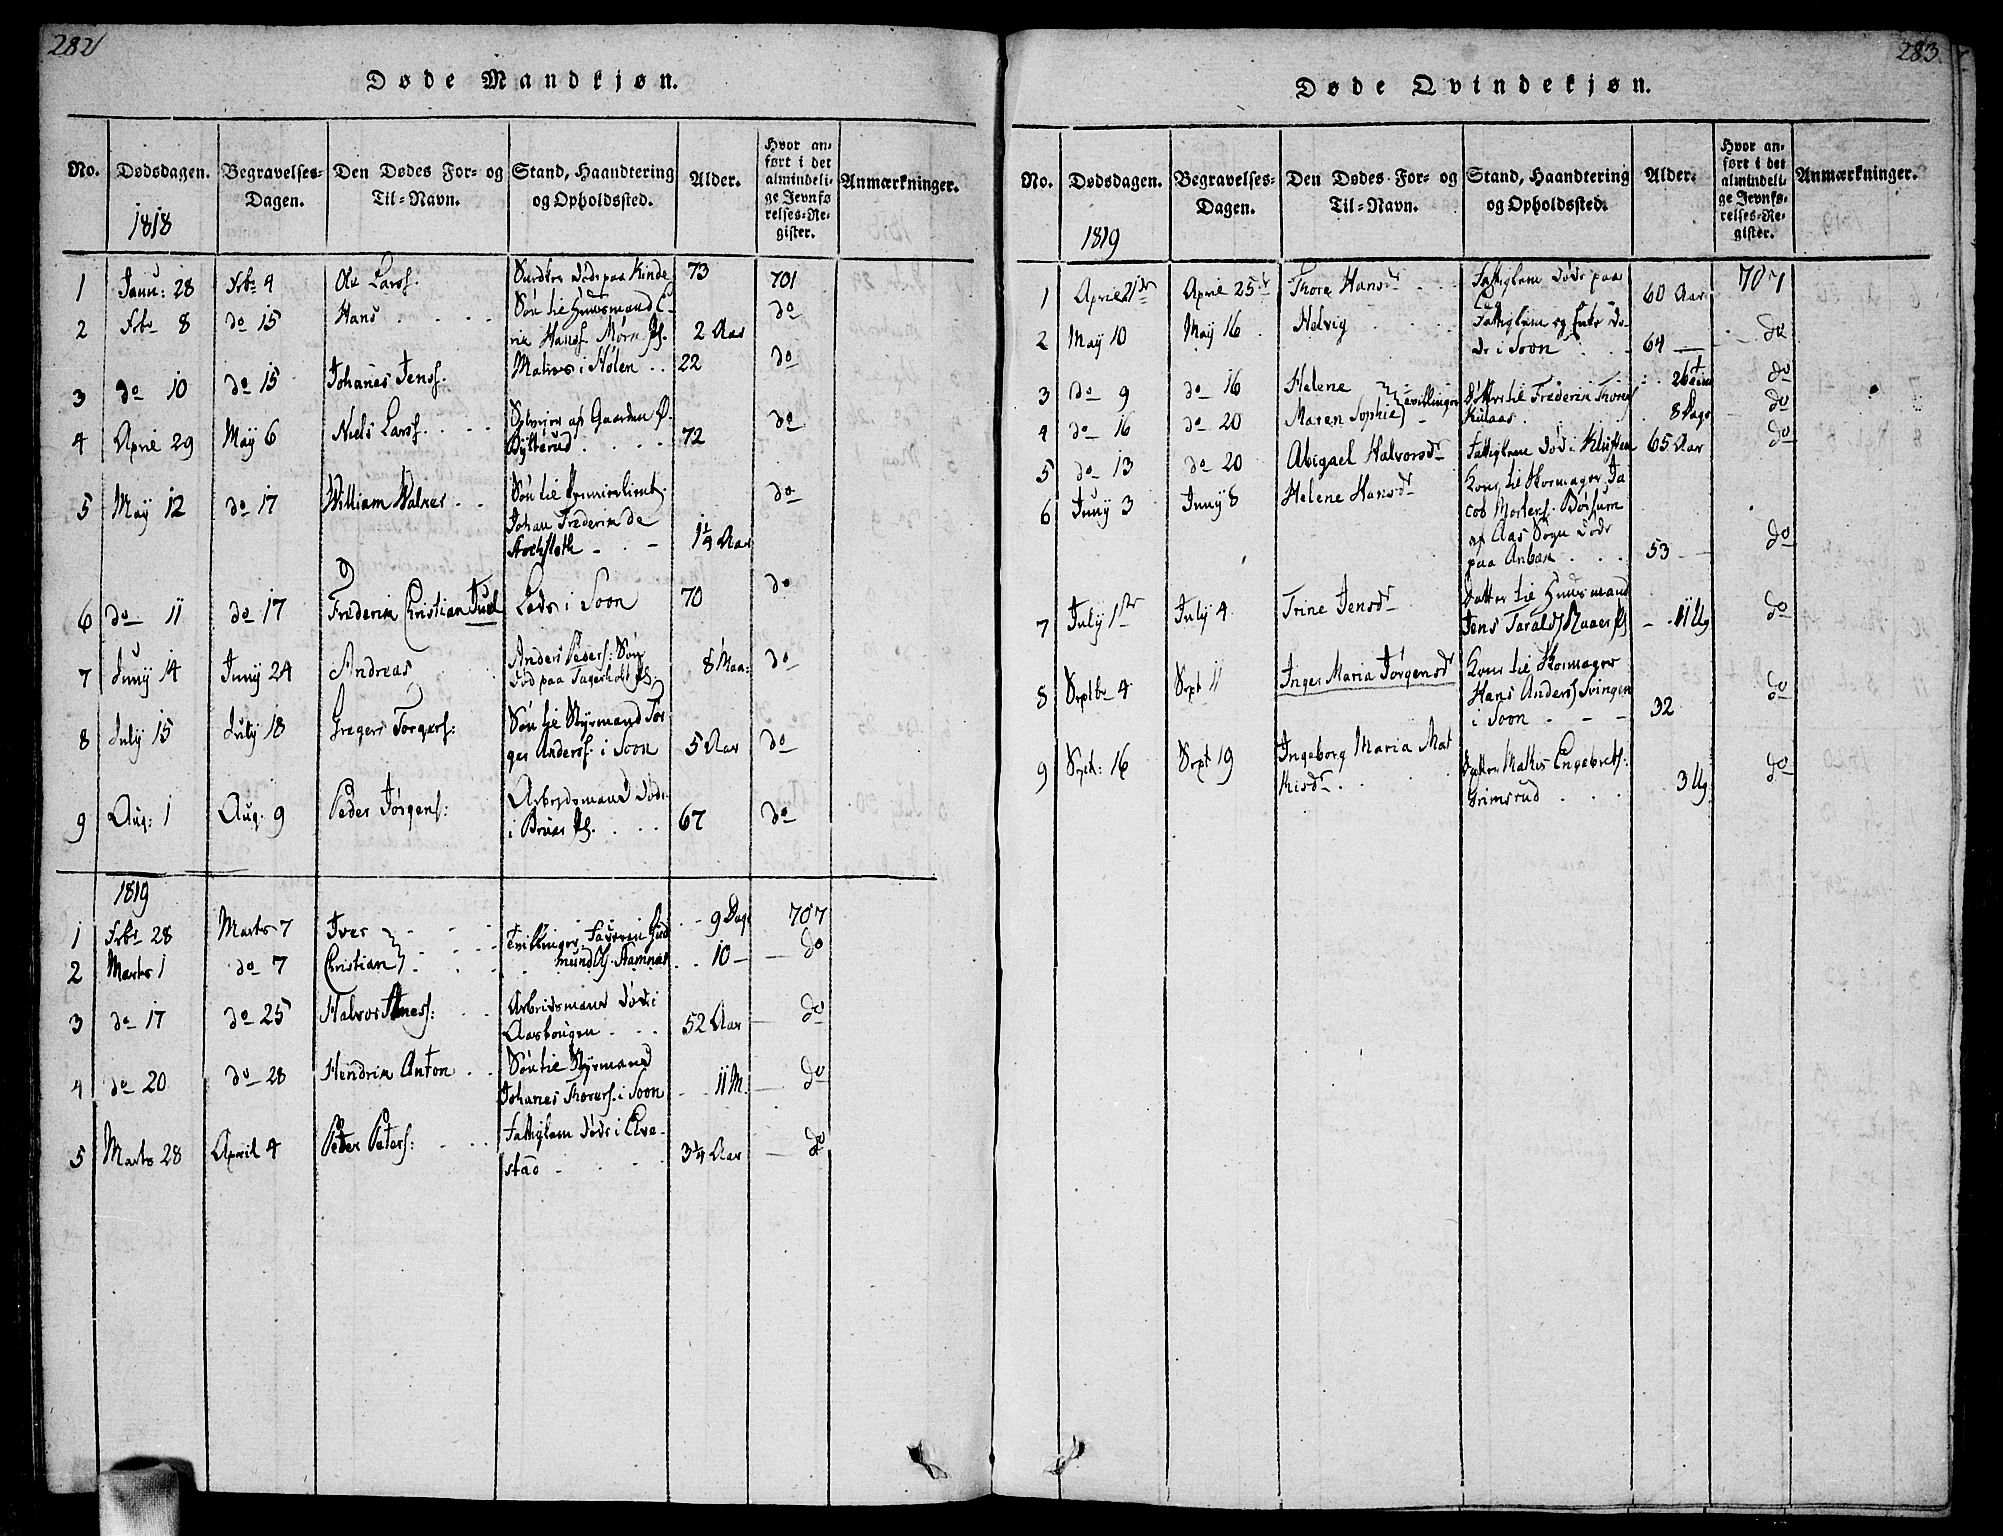 282
Døde Mandkjøn.
No.
Dødsdagen.
1818
Begravelses-
Dagen.
Den Dødes For- og
Til-Navn.
Stand, Haandtering
og Opholdssted.
Alder.
Hvor an-
ført i det
almindeli-
ge Jevnfø
relses-Re-
gister.
Anmærkninger.
1 Janu: 28 Febr 4 Ole Larss. døde paa Kinde 73 701
2 Febr 8 do 15 Hans Søn til Huusmand E-
rik Hanss. Mørk 2 Aar do
3 do 10 do 15 Johanes Jenss. Matros i Hølen 22 do
4 April 29 May 6 Niels Larss. af Gaarden
72 do
5 May 12 do 17 William Søn til Premierlieut.
Johan Frederik de
1¼ Aar do
6 do 11 do 17 Frederik Christian Juel Lods i Soon 70 do
7 Juny 14 Juny 24 Andreas Anders Peders: Søn
død paa Fagerholt 8 Maa: do
8 July 15 July 18 Gregers Torgers: Søn til Styrmand Tor
ger Anderss. i Soon 5 Aar do
9 Aug: 1 Aug. 9 Peder Jørgens: Arbeidsmand døde
i 67 do
1819
1 Febr 28 Marts 7 Iver Tvillinger 9 Dage 707
2 Marts 1 do 7 Christian 10 do
3 do 17 do 25 Halvor Arbeidsmand døde i
52 Aar do
4 do 20 do 28 Hendrik Anton Søn til Styrmand
Johanes Thorers. i Soon 11 M. do
5 Marts 28 April 4 Peder Peters: Fattiglem døde i Elve-
stad 3¼ Aar do
283.
Døde Qvindekjøn.
No.
Dødsdagen.
1819
Begravelses-
Dagen.
Den Dødes For- og
Til-Navn.
Stand, Haandtering
og Opholdssted.
Alder.
Hvor an-
ført i det
almindeli-
ge Jevnfø-
relses-Re-
gister.
Anmærkninger.
1 April 21de April 25de Thore Hansdr Fattiglem døde paa
60 Aar 707
2 May 10 May 16 Helvig Fattiglem og Enke dø-
de i Soon 64 do
3 do 9 do 16 Helene Tvillinger Døttre til Frederik Thores 26 Tim do
4 do 16 do 20 Maren Sophie 8 Dage do
5 do 13 do 20 Abigael Halvorsdr Fattiglem død i Kluften 65 Aar do
6 Juny 3 Juny 8 Helene Hansdr Kone til Skomager Ja
cob Mortens. Børsum
af Aas Sogn døde
paa 53 do
7 July 1ste July 4 Trine Jensdr Datter til Huusmand
Jens Taralds 11 Ug do
8 Septbr 4 Sept 11 Inger Maria Jørgensdr Kone til Skomager
Hans Anderss Svingen
i Soon 32 do
9 Sept: 16 Sept 19 Ingeborg Maria Mat
hisdr Datter Mathis Engebrets:
Grimsrud 3 Ug do